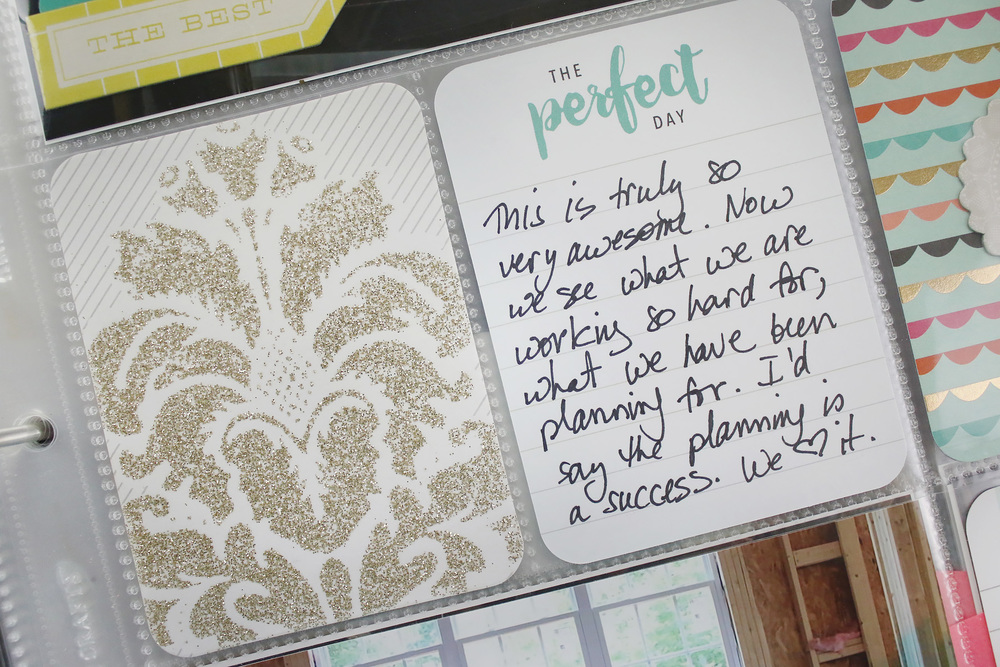 THE BEST
THE
perfect
DAY
This is truly so
very awesome. Now
we see what we are
working so hard for,
what we have been
planning for. I'd
say the planning is
a success. We ♡ it.